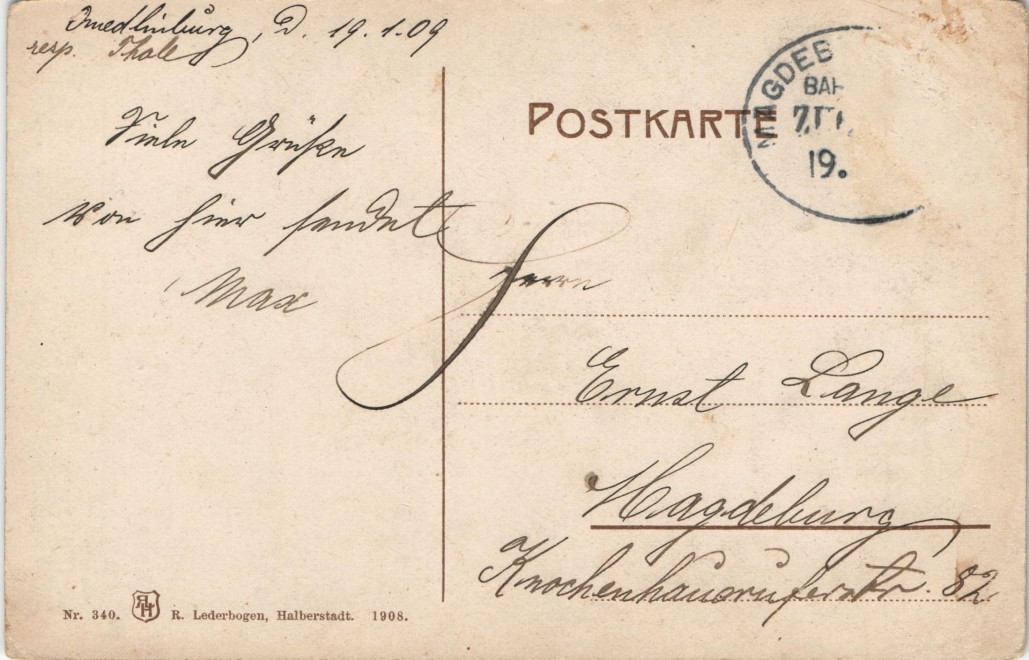 Quedlinburg, D. 19.1.09
resp. Thale
Viele Grüße
von hier sendet
Max
POSTKARTE
MAGDEB
BAH
ZUG
19.
Herrn
Ernst Lange
Magdeburg
Knochenhauruferstr. 82
Nr. 340. R. Lederbogen, Halberstadt. 1908.